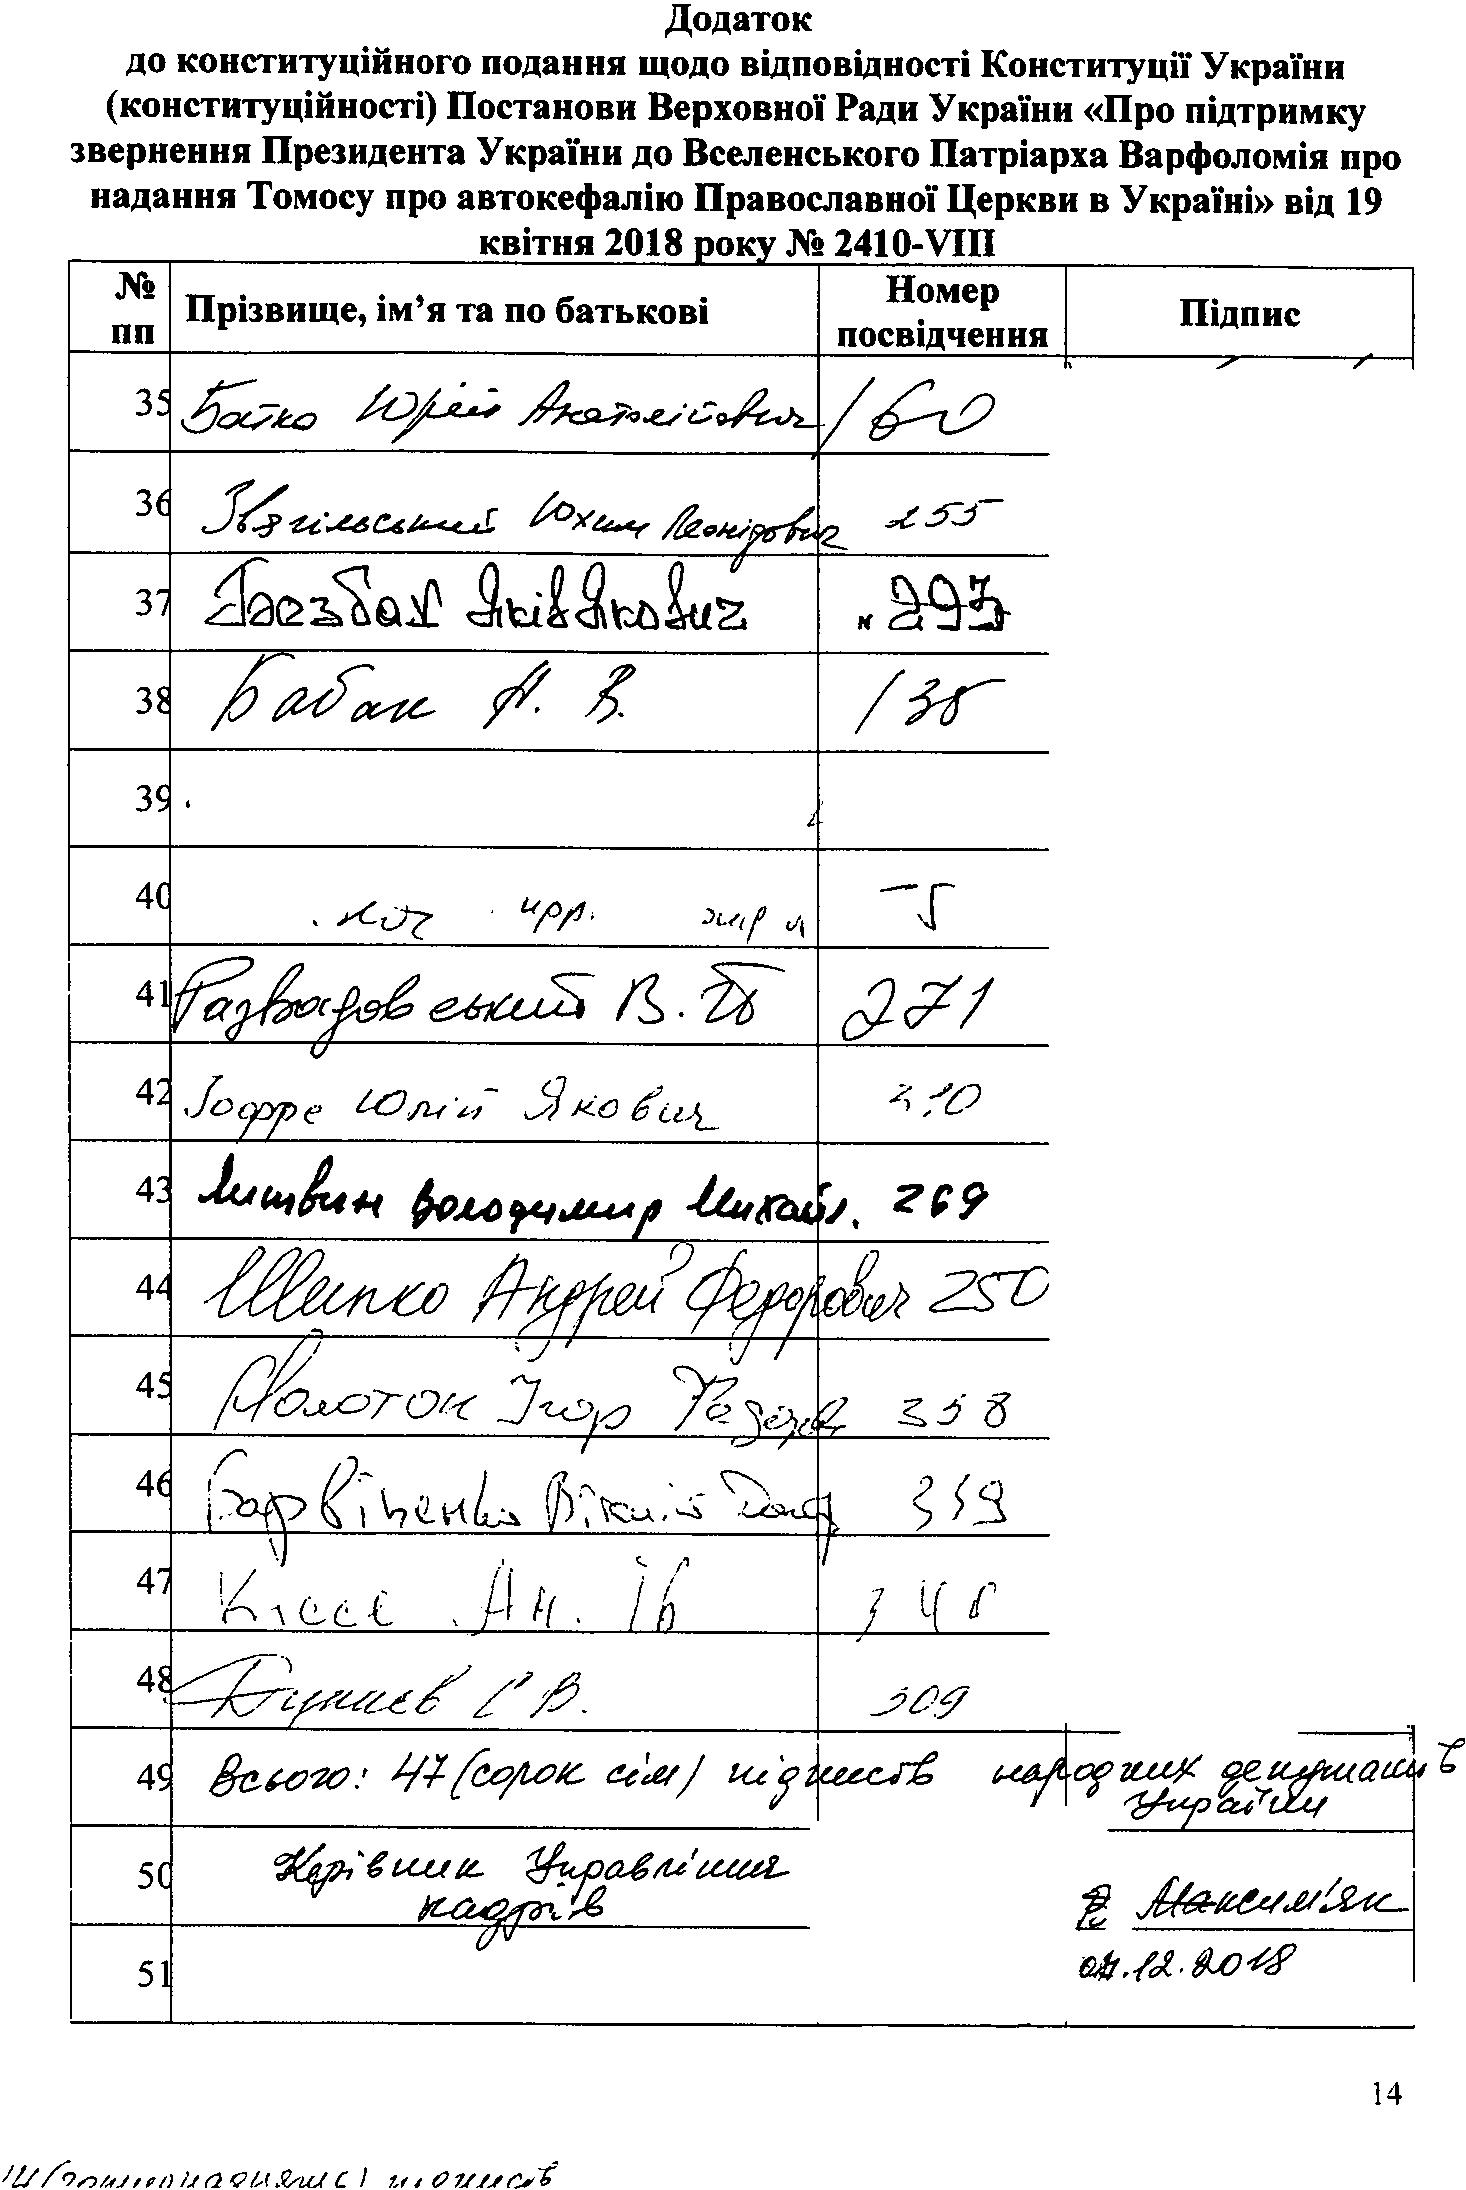 Додаток
до конституційного подання щодо відповідності Конституції України
(конституційності) Постанови Верховної Ради України «Про підтримку
звернення Президента України до Вселенського Патріарха Варфоломія про
надання Томосу про автокефалію Православної Церкви в Україні» від 19
квітня 2018 року № 2410-VIII
№ пп Прізвище, ім’я та по батькові Номер посвідчення Підпис
35 Бойко Юрій Анатолійович 160
36 Звягільський Юхим Леонідович 255
37 Безбах Яків Якович 297
38 Бабак А. В. 138
39
40
41 Развадовський В. Й 271
42 Іоффе Юлій Якович 310
43 Литвин Володимир Михайл. 269
44 Шипко Андрей Федорович 250
45 Молоток Ігор Федор 358
46 Барвіненко Віталій Дмитр 359
47 Кіссе Ан. Ів 348
48 Дунаєв С В. 309
49 Всього: 47 (сорок сім) підписів народних депутатів
України
50 Керівник Управління
кадрів
Максим'як
51 04.12.2018
14
підписів